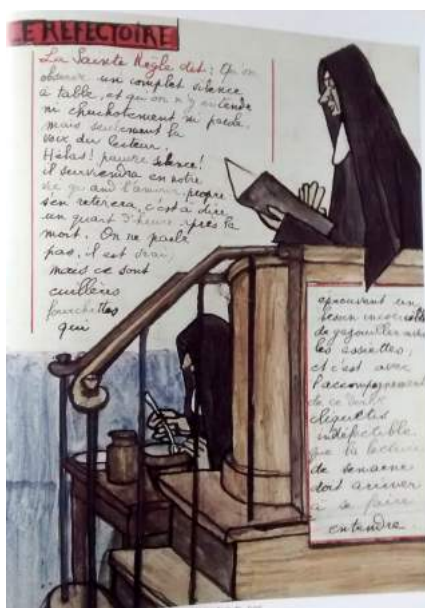 LE REFECTOIRE
La Sainte Règle dit: Qu'on
observe un complet silence
à table, et qu'on n'y entende
ni chuchotement ni parole.
mais seulement la
voix du lecteur.
Hélas! pauvre silence!
il surviendra en notre
vie quand l'amour propre
s'en retirera, c'est à dire
un quart d'heure après la
mort. On ne parle
pas, il est vrai,
mais ce sont
cuillères
fourchettes
qui
éprouvant un
besoin
de gazouiller avec
les assiettes,
et c'est avec
l'accompagnement
de ce doux
cliquetis
indéfectible
que la lectrice
de semaine
doit arriver
à se faire
entendre